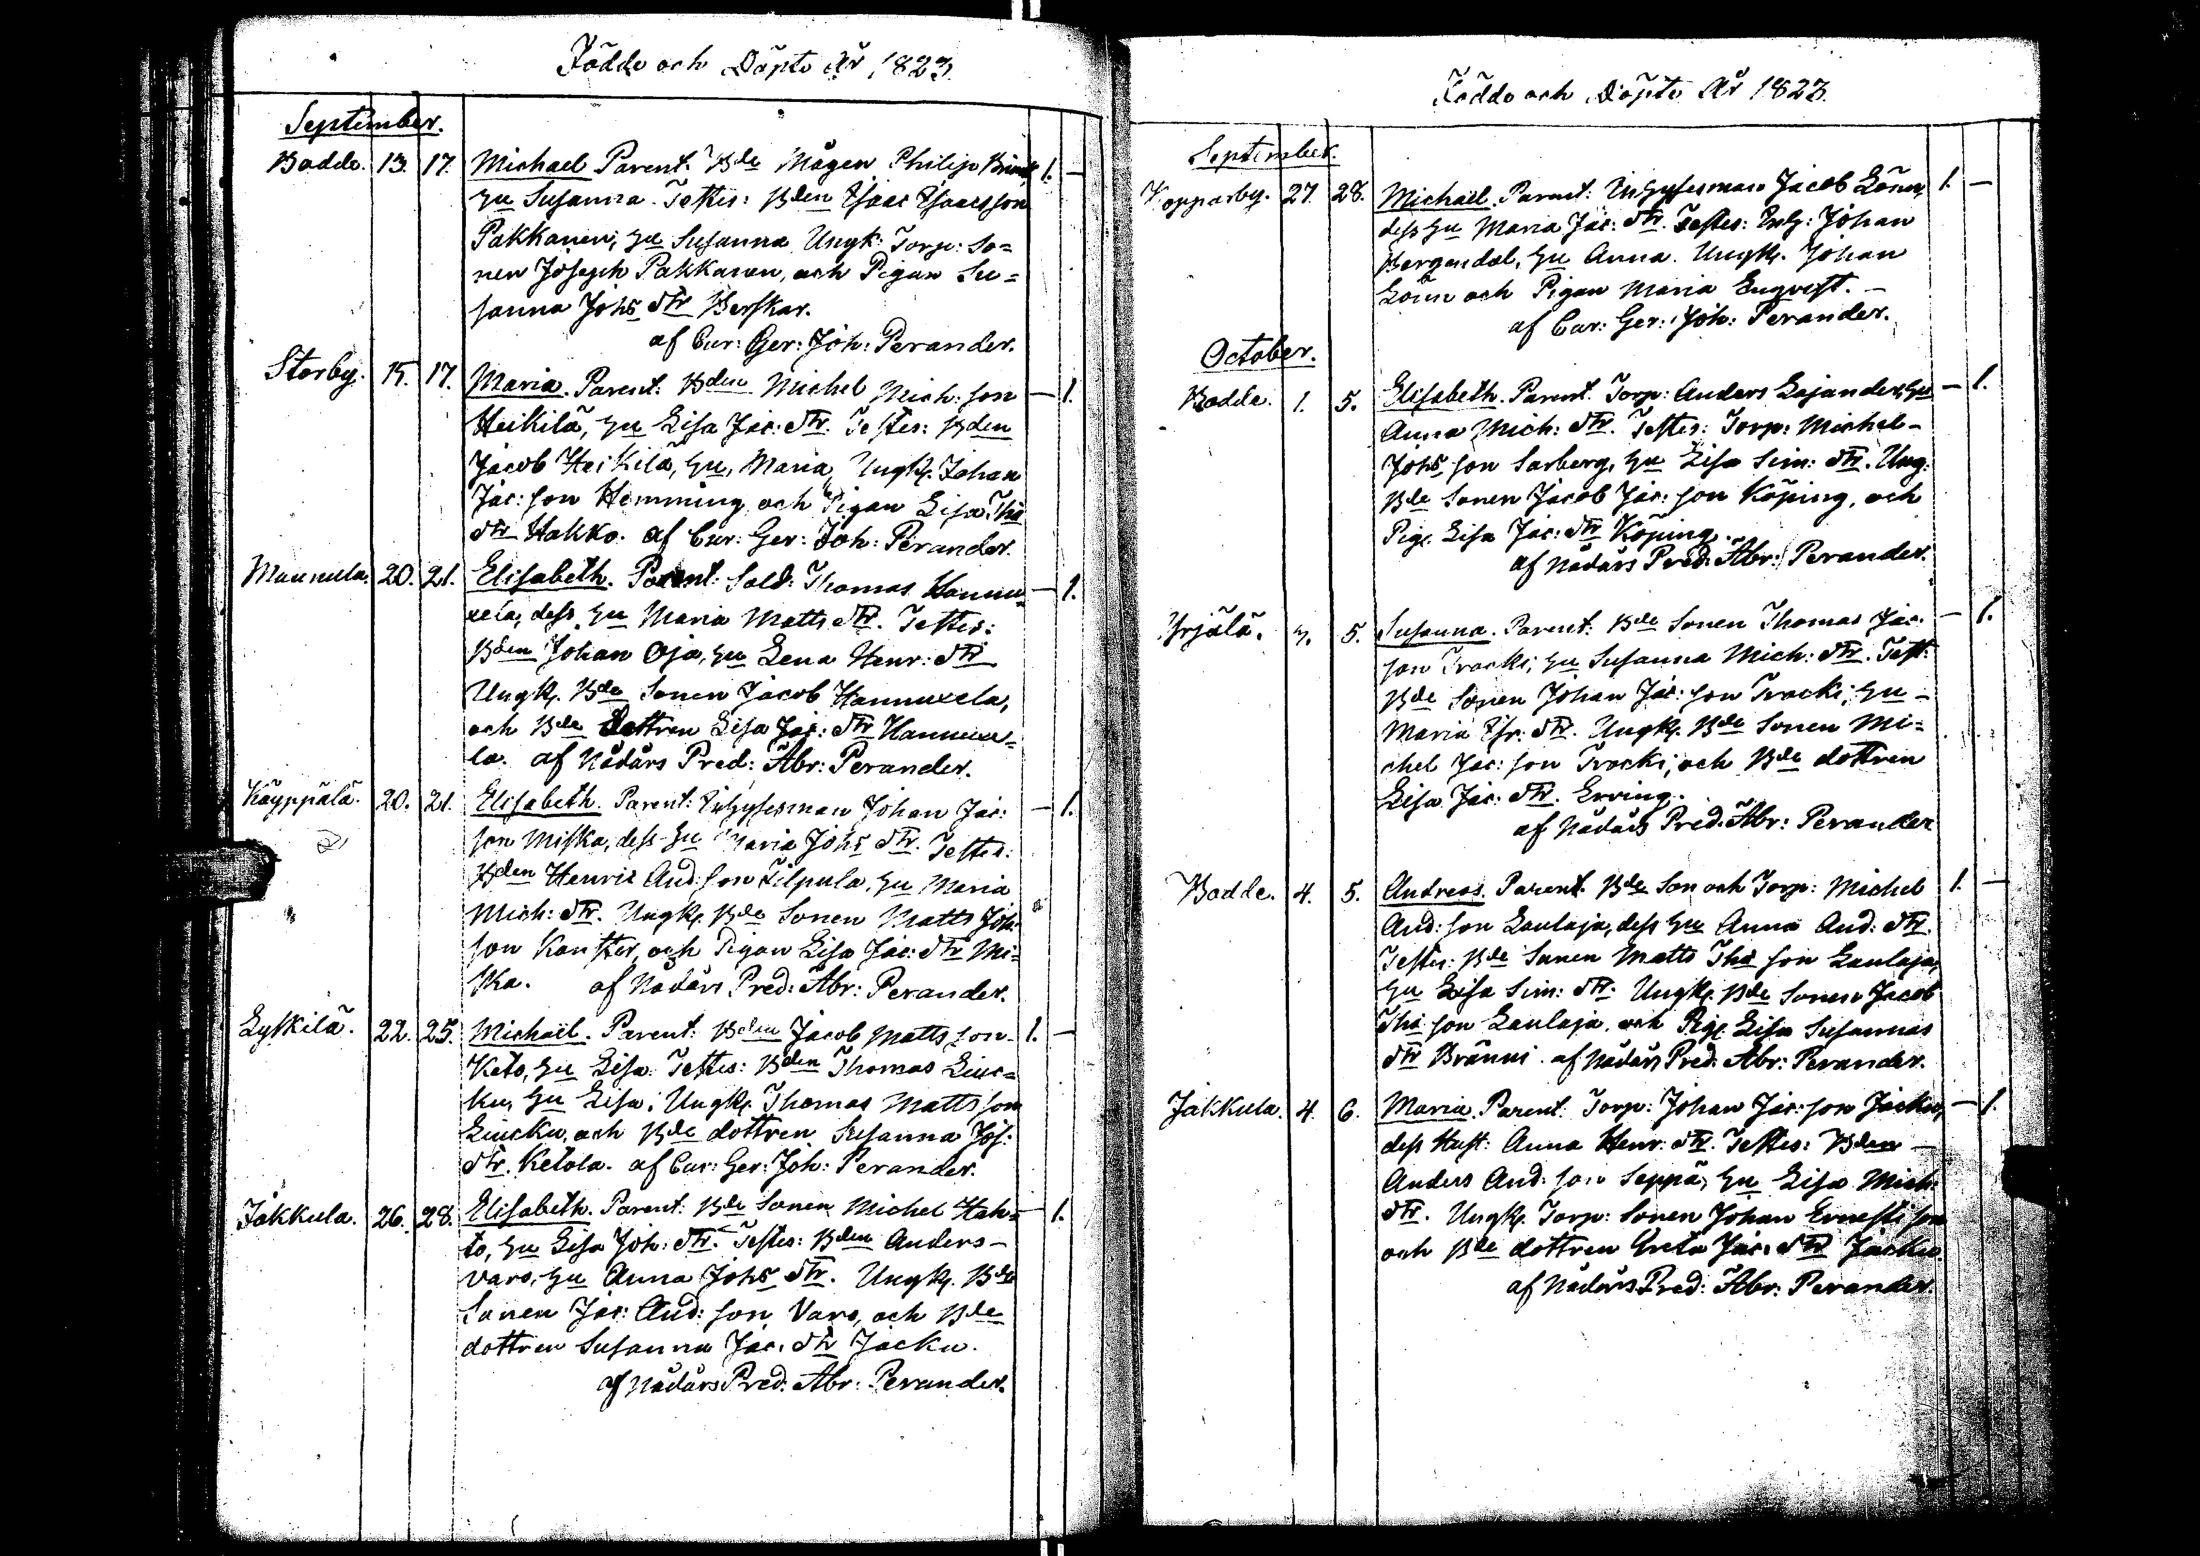 Födde och Döpte År 1823.
September.
Badde. 13. 17. Michael. Parent: Bde Mågen Philip 1. –
Hu Susanna. Testes: Bden Isaac Isaacsson
Pakkanen, Hu Susanna Ungk: Torp: So=
nen Joseph Pakkanen, och Pigan Su=
sanna Johs dtr Berskar.
af Cur: Ger: Joh: Perander.
Storby. 15. 17. Maria. Parent: Bden Michel Mich: son – 1.
Heikilä, Hu Lisa Jac: dtr. Testes: Bden
Jacob Heikilä, Hu, Maria, Ungk. Johan
Jac: son Hemming och Pigan Lisa Ths
dtr Hakko. af Cur: Ger: Joh: Perander.
Mannula. 20. 21. Elisabeth. Parent: Sold: Thomas Hannu= – 1.
xela, dess Hu Maria Matts dtr. Testes:
Bden Johan Oja, Hu Lena Henr: dtr
Ungk. Bde Sonen Jacob Hannuxela,
och Bde dottren Lisa Jac: dtr Hannuxe=
la. af Nådårs Pred: Abr: Perander.
Käyppälä. 20. 21. Elisabeth. Parent: Inhysesman Johan Jac: – 1.
son Miska, dess Hu Maria Johs dtr. Testes:
Bden Henric And: son Filpula, Hu Maria
Mich: dtr. Ungk. Bde Sonen Matts Joh:
son Kanster, och Pigan Lisa Jac: dtr Mi=
ska. af Nådårs Pred: Abr: Perander.
Lytkilä. 22. 25. Michaël. Parent: Bden Jacob Matts son 1. –
Keto, Hu Lisa. Testes: Bden Thomas Liuc=
ku, Hu Lisa. Ungk. Thomas Matts son
Liucku, och Bde dottren Susanna Jos:
dtr. Ketola. af Cur: Ger: Joh: Perander.
Jåkkula. 26. 28. Elisabeth. Parent: Bde Sonen Michel Hah= – 1.
to, Hu Lisa Joh: dtr. Testes: Bden Anders –
Varo, Hu Anna Johs dtr. Ungk. Bde
Sonen Jac: And: son Varo, och Bde
dottren Susanna Jac: dtr Jacku.
af Nådårs Pred: Abr: Perander.
Födde och Döpte År 1823.
September.
Kopparby. 27. 28. Michaël. Parent: Inhysesman Jacob Lönn, 1. –
dess Hu Maria Jac: dtr. Testes: Inh: Johan
Bergendal, Hu Anna. Ungk. Johan
Lönn och Pigan Maria Enqvist. –
af Cur: Ger: Joh: Perander.
October.
Badde. 1. 5. Elisabeth. Parent. Torp: Anders Lajander, Hu – 1.
Anna Mich: dtr. Testes: Torp: Michel –
Johs son Sarberg, Hu Lisa Sim: dtr. Ung:
Bde Sonen Jacob Jac: son Köping, och
Pig. Lisa Jac: dtr Köping.
af Nådårs Pred: Abr: Perander.
Yrjälä. 3. 5. Susanna. Parent: Bde Sonen Thomas Jac: – 1.
son Tracki, Hu Susanna Mich: dtr. Test:
Bde Sonen Johan Jac: son Tracki, Hu –
Maria Isr: dtr. Ungk. Bde Sonen Mi=
chel Jac: son Tracki, och Bde dottren
Lisa Jac: dtr. Erving.
af Nådårs Pred: Abr: Perander
Badde. 4. 5. Andreas. Parent. Bde Son och Torp: Michel 1. –
And: son Laulaja, dess Hu Anna And: dtr.
Testes: Bde Sonen Matts Ths son Laulaja,
Hu Lisa Sim: dtr. Ungk. Bde Sonen Jacob
Ths son Laulaja, och Pig. Lisa Susannas
dtr Bränni. af Nådårs Pred: Abr: Perander.
Jåkkula. 4. 6. Maria. Parent: Torp: Johan Jac: son Jacku, – 1.
dess Hust: Anna Henr: dtr. Testes: Bden –
Anders And: son Seppä, Hu Lisa Mich:
dtr. Ungk. Torp: Sonen Johan Ernesti son
och Bde dottren Greta Jac: dtr Jacku.
af Nådårs Pred: Abr: Perander.